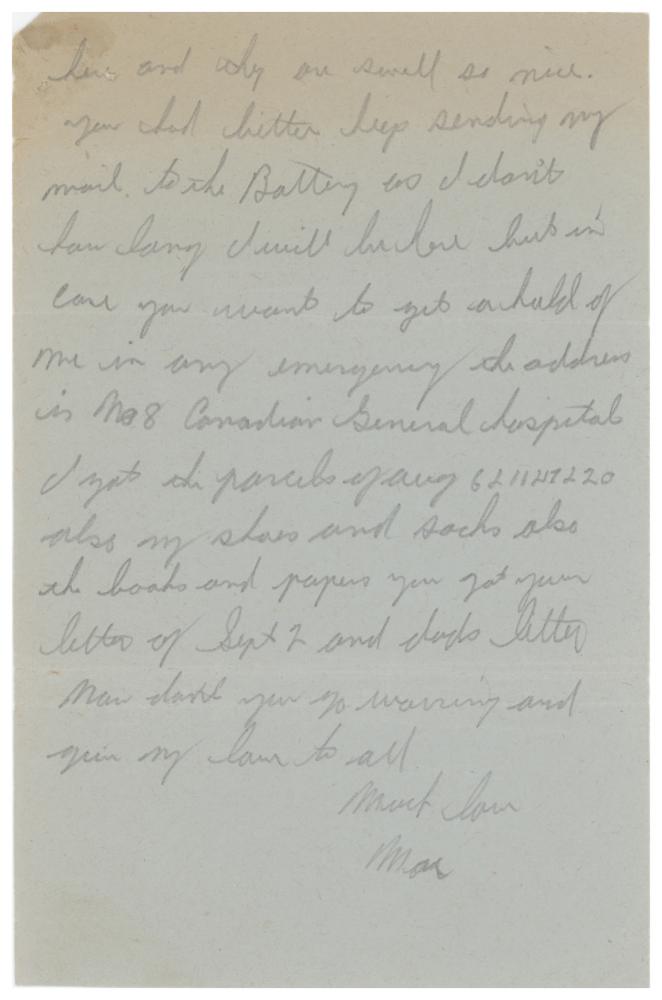 here and they are swell so nice.
you had better keep sending my
mail. to the Battery as I don't
how long I will be here but in
case you want to get a hold of
me in any emergency the address
is No 8 Canadian General hospital
I got the parcels of aug 6
also my shoes and socks also
the books and papers you got your
letter of Sept 2 and dads letter
Now don't you go worring and
give my love to all
Most love